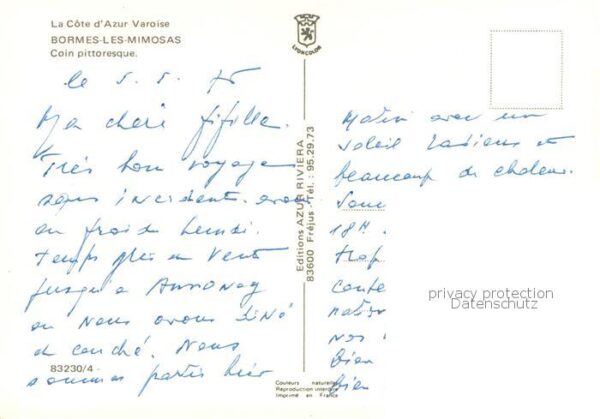 La Côte d'Azur Varoise
BORMES-LES-MIMOSAS
Coin pittoresque.
LYONCOLOR
le 5.5.75
Ma chère fifille.
Très bon voyage
sans incident. avons
eu froid lundi.
temps gris et vent
jusqu'à Annonay
où nous avons dîné
et couché. Nous
sommes partis hier
83230/4
Editions AZUR RIVIERA
83600 Fréjus - Tél. : 95.29.73
Couleurs naturelles
Reproduction interdite
Imprimé en France
Matin avec un
soleil radieux et
beaucoup de chaleur.
18H
nos
bien
privacy protection
Datenschutz